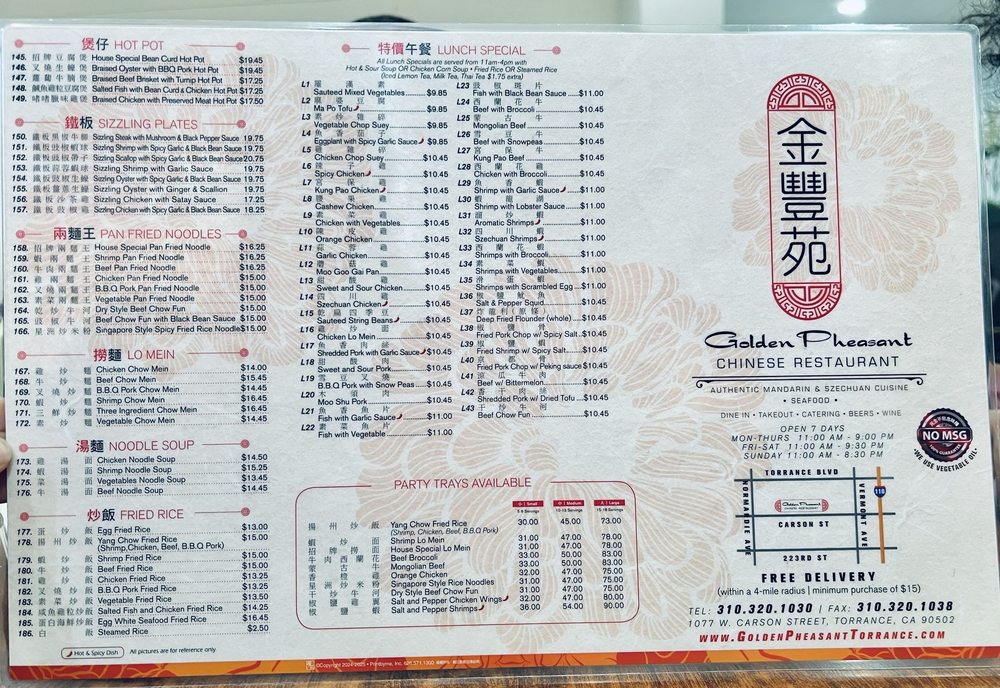 煲仔 HOT POT
145. 招牌豆腐煲 House Special Bean Curd Hot Pot $19.45
146. 叉燒生蠔煲 Braised Oyster with BBQ Pork Hot Pot $19.45
147. 蘿蔔牛腩煲 Braised Beef Brisket with Turnip Hot Pot $17.25
148. 鹹魚雞粒豆腐煲 Salted Fish with Bean Curd & Chicken Hot Pot $17.25
149. 啫啫臘味雞煲 Braised Chicken with Preserved Meat Hot Pot $17.50
鐵板 SIZZLING PLATES
150. 鐵板黑椒牛柳 Sizzling Steak with Mushroom & Black Pepper Sauce 19.75
151. 鐵板豉椒蝦球 Sizzling Shrimp with Spicy Garlic & Black Bean Sauce 19.75
152. 鐵板豉椒帶子 Sizzling Scallop with Spicy Garlic & Black Bean Sauce 20.75
153. 鐵板蒜蓉蝦球 Sizzling Shrimp with Garlic Sauce 19.75
154. 鐵板豉椒生蠔 Sizzling Oyster with Spicy Garlic & Black Bean Sauce 19.75
155. 鐵板薑蔥生蠔 Sizzling Oyster with Ginger & Scallion 19.75
156. 鐵板沙茶雞 Sizzling Chicken with Satay Sauce 17.25
157. 鐵板豉椒雞 Sizzling Chicken with Spicy Garlic & Black Bean Sauce 18.25
兩麵王 PAN FRIED NOODLES
158. 招牌兩麵王 House Special Pan Fried Noodle $16.25
159. 蝦兩麵王 Shrimp Pan Fried Noodle $16.25
160. 牛肉兩麵王 Beef Pan Fried Noodle $16.25
161. 雞兩麵王 Chicken Pan Fried Noodle $15.00
162. 叉燒兩麵王 B.B.Q Pork Pan Fried Noodle $15.00
163. 素菜兩麵王 Vegetable Pan Fried Noodle $15.00
164. 乾炒牛河 Dry Style Beef Chow Fun $15.00
165. 豉椒牛河 Beef Chow Fun with Black Bean Sauce $15.00
166. 星洲炒米粉 Singapore Style Spicy Fried Rice Noodle $15.00
撈麵 LO MEIN
167. 雞炒麵 Chicken Chow Mein $14.00
168. 牛炒麵 Beef Chow Mein $15.45
169. 叉燒炒麵 B.B.Q Pork Chow Mein $14.45
170. 蝦炒麵 Shrimp Chow Mein $16.45
171. 三鮮炒麵 Three Ingredient Chow Mein $16.45
172. 素炒麵 Vegetable Chow Mein $14.45
湯麵 NOODLE SOUP
173. 雞湯面 Chicken Noodle Soup $14.50
174. 蝦湯面 Shrimp Noodle Soup $15.25
175. 菜湯面 Vegetables Noodle Soup $13.45
176. 牛湯面 Beef Noodle Soup $14.45
炒飯 FRIED RICE
177. 蛋炒飯 Egg Fried Rice $13.00
178. 揚州炒飯 Yang Chow Fried Rice $15.00
(Shrimp,Chicken, Beef, B.B.Q Pork)
179. 蝦炒飯 Shrimp Fried Rice $15.00
180. 牛炒飯 Beef Fried Rice $15.00
181. 雞炒飯 Chicken Fried Rice $13.25
182. 叉燒炒飯 B.B.Q Pork Fried Rice $13.25
183. 素菜炒飯 Vegetable Fried Rice $13.50
184. 咸魚雞粒炒飯 Salted Fish and Chicken Fried Rice $14.25
185. 蛋白海鮮炒飯 Egg White Seafood Fried Rice $16.45
186. 白飯 Steamed Rice $2.50
Hot & Spicy Dish
All pictures are for reference only.
特價午餐 LUNCH SPECIAL
All Lunch Specials are served from 11am-4pm with
Hot & Sour Soup OR Chicken Corn Soup • Fried Rice OR Steamed Rice
(Iced Lemon Tea, Milk Tea, Thai Tea $1.75 extra)
L1 羅漢素
Sauteed Mixed Vegetables $9.85
L2 麻婆豆腐
Ma Po Tofu $9.85
L3 素炒雜碎
Vegetable Chop Suey $9.85
L4 魚香茄子
Eggplant with Spicy Garlic Sauce $9.85
L5 雞雜碎
Chicken Chop Suey $10.45
L6 辣子雞
Spicy Chicken $10.45
L7 宮保雞
Kung Pao Chicken $10.45
L8 腰果雞
Cashew Chicken $10.45
L9 素菜雞
Chicken with Vegetables $10.45
L10 陳皮雞
Orange Chicken $10.45
L11 蒜蓉雞
Garlic Chicken $10.45
L12 蘑菇雞
Moo Goo Gai Pan $10.45
L13 甜酸雞
Sweet and Sour Chicken $10.45
L14 四川雞
Szechuan Chicken $10.45
L15 乾扁四季豆
Sauteed String Beans $10.45
L16 雞炒面
Chicken Lo Mein $10.45
L17 魚香肉絲
Shredded Pork with Garlic Sauce $10.45
L18 甜酸肉
Sweet and Sour Pork $10.45
L19 雪豆叉燒
B.B.Q Pork with Snow Peas $10.45
L20 木須肉
Moo Shu Pork $10.45
L21 魚香魚片
Fish with Garlic Sauce $11.00
L22 素菜魚片
Fish with Vegetable $11.00
L23 豉椒斑片
Fish with Black Bean Sauce $11.00
L24 西蘭花牛
Beef with Broccoli $10.45
L25 蒙古牛
Mongolian Beef $10.45
L26 雪豆牛
Beef with Snowpeas $10.45
L27 宮保牛
Kung Pao Beef $10.45
L28 西蘭花雞
Chicken with Broccoli $10.45
L29 魚香蝦
Shrimp with Garlic Sauce $11.00
L30 蝦龍湖
Shrimp with Lobster Sauce $11.00
L31 甜炒蝦
Aromatic Shrimps $11.00
L32 四川蝦
Szechuan Shrimp $11.00
L33 西蘭花蝦
Shrimps with Broccoli $11.00
L34 素菜蝦
Shrimps with Vegetables $11.00
L35 滑蛋蝦
Shrimps with Scrambled Egg $11.00
L36 椒鹽魷魚
Salt & Pepper Squid $10.45
L37 炸龍利(原條)
Deep Fried Flounder (whole) $10.45
L38 椒鹽骨
Fried Pork Chop w/ Spicy Salt $10.45
L39 椒鹽蝦
Fried Shrimp w/ Spicy Salt $10.45
L40 京都骨
Fried Pork Chop w/ Peking sauce $10.45
L41 涼瓜牛肉
Beef w/ Bittermelon $10.45
L42 香干肉絲
Shredded Pork w/ Dried Tofu $10.45
L43 干炒牛河
Beef Chow Fun $10.45
PARTY TRAYS AVAILABLE
小 | Small 中 | Medium 大 | Large
5-8 Servings 10-13 Servings 15-18 Servings
揚州炒飯 Yang Chow Fried Rice 30.00 45.00 73.00
(Shrimp, Chicken, Beef, B.B.Q Pork)
蝦炒面 Shrimp Lo Mein 31.00 47.00 78.00
招牌撈面 House Special Lo Mein 31.00 47.00 78.00
牛肉西蘭花 Beef Broccoli 33.00 50.00 83.00
蒙古牛 Mongolian Beef 33.00 50.00 83.00
香橙雞 Orange Chicken 32.00 47.00 75.00
星洲炒米粉 Singapore Style Rice Noodles 31.00 47.00 75.00
干炒牛河 Dry Style Beef Chow Fun 31.00 47.00 75.00
椒鹽雞翼 Salt and Pepper Chicken Wings 32.00 47.00 80.00
椒鹽蝦 Salt and Pepper Shrimps 36.00 54.00 90.00
©Copyright 2024-2025 • Printbyme, Inc. 626.571.1300
金豐苑
Golden Pheasant
CHINESE RESTAURANT
AUTHENTIC MANDARIN & SZECHUAN CUISINE
• SEAFOOD •
DINE IN • TAKEOUT • CATERING • BEERS • WINE
OPEN 7 DAYS
MON-THURS 11:00 AM - 9:00 PM
FRI-SAT 11:00 AM - 9:30 PM
SUNDAY 11:00 AM - 8:30 PM
NO MSG
•WE USE VEGETABLE OIL•
TORRANCE BLVD
NORMANDIE AVE
Golden Pheasant
CHINESE RESTAURANT
VERMONT AVE
110
CARSON ST
223RD ST
FREE DELIVERY
(within a 4-mile radius | minimum purchase of $15)
TEL: 310.320.1030 | FAX: 310.320.1038
1077 W. CARSON STREET, TORRANCE, CA 90502
WWW.GOLDENPHEASANTTORRANCE.COM